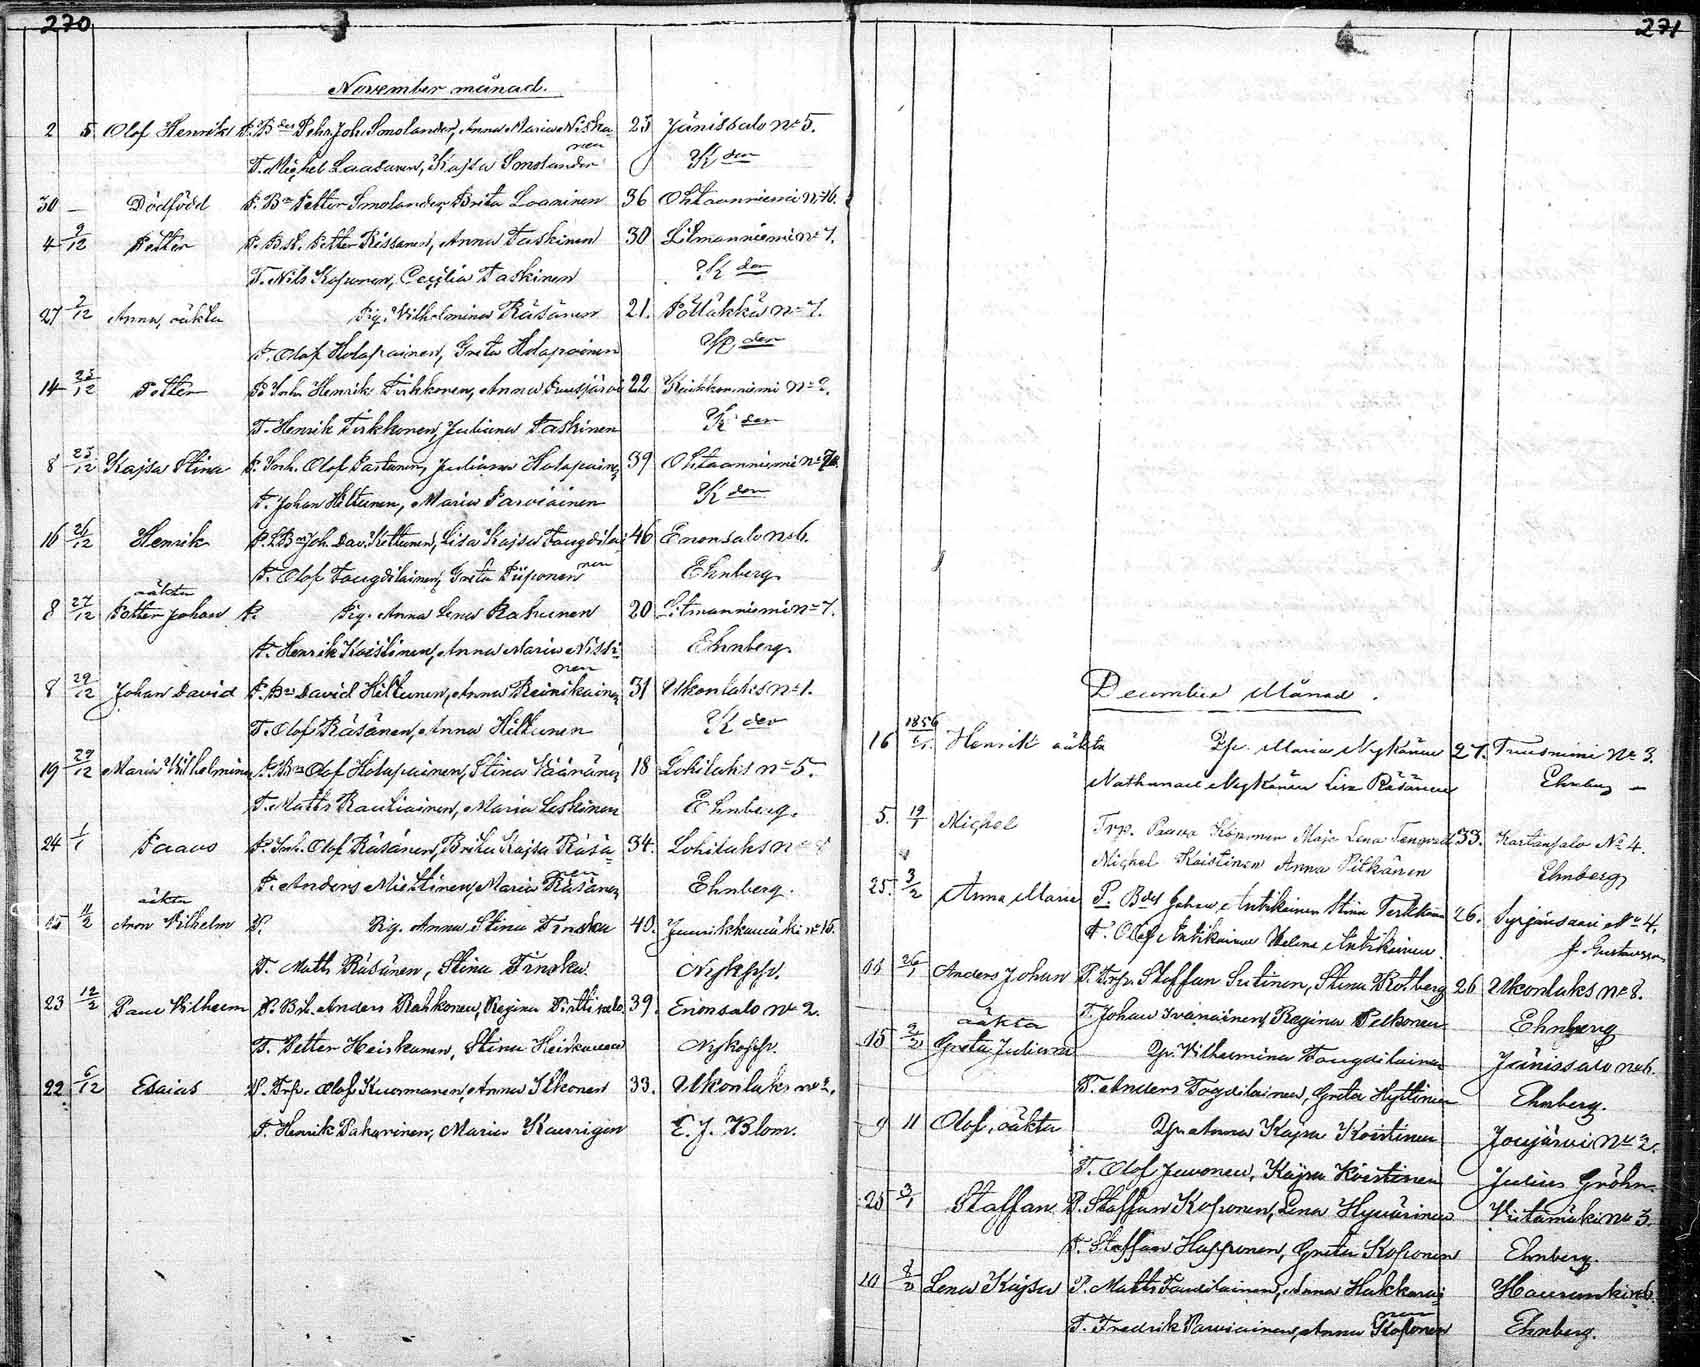 270
November månad.
2 5 Olof Henrik P. Bdes Pehr Joh. Smolander, Anna Maria Niska- 23 Jänissalo No 5.
nen
T. Michel Laasanen, Kajsa Smolander K den
30 — Dödfödd P. Bn Petter Smolander, Brita Laaninen 36 Ohtaanniemi No 16.
4 9/12 Petter P. B.st. Petter Rissanen, Anna Taskinen 30 Litmanniemi No 7.
T. Nils Koponen, Cecilia Taskinen K den
27 9/12 Anna, oäkta Pig. Vilhelmina Räsänen 21. Pölläkkä No 7.
T. Olof Holopainen, Greta Holopainen den
14 23/12 Petter P. Inh. Henrik Tirkkonen, Anna 22 Kuikkaniemi No 2.
T. Henrik Tirkkonen, Juliana Taskinen K den
8 25/12 Kajsa Stina P. Inh. Olof Partanen, Juliana Holopainen 39 Ohtaanniemi No
T. Johan Hiltunen, Maria Parviainen K den
16 26/12 Henrik P. Joh. Dav. Kettunen, Lisa Kajsa Faugdilai 46 Enonsalo No 6.
nen
T. Olof Faugdilainen, Greta Piiponen Ehnberg
oäkta
8 27/12 Petter Johan P. Pig. Anna Lena Rahunen 20 Litmanniemi No 7.
T. Henrik Koistinen, Anna Maria Nissi- Ehnberg
nen
8 29/12 Johan David P. Bn David Hiltunen, Anna Reinikainen 31 Ukonlaks No 1.
T. Olof Räsänen, Anna Hiltunen K den
19 29/12 Maria Vilhelmina P. Bn Olof Holopainen, Stina Väänänen 18 Lohilaks No 5.
T. Matts Rautiainen, Maria Leskinen Ehnberg.
24 1/1 Paavo P. Inh. Olof Räsänen, Brita Kajsa Räsä- 34. Lohilaks No 8
nen
T. Anders Miettinen, Maria Räsänen Ehnberg.
oäkta
15 11/2 Aron Vilhelm P. Pig. Anna Stina Trnska 40. No 15.
T. Matts Räsänen, Stina Trnska Nyköpp.
23 12/2 Paul Vilhelm P. Bst. Anders Rahkonen, Regina Pirttisalo 39. Enonsalo No 2.
T. Petter Heiskanen, Stina Heiskanen Nyköpp.
22 6/12 Esaias P. Trp. Olof Kuosmanen, Anna Ikonen 33. Ukonlaks No 2.
T. Henrik Pakarinen, Maria Kauringen E. J. Blom.
271
December Månad.
1856
16 Henrik oäkta Pp. Maria Nykänen 27. Tuusniemi No 3.
Nathanael Nykänen Lisa Räsänen Ehnberg
5. 19/1 Michel Trp. Paavo Köponen Maja Lena Tengvall 33. Kartansalo No 4.
Michel Koistinen Anna Pitkänen Ehnberg
25. 3/2 Anna Maria P. Bdes Johan Antikainen Stina Tirkkonen 26. Syrjänsaari No 4.
T. Olof Antikainen Helena Antikainen f. Gustavsson
26/1 Anders Johan P. Trp. Staffan Sutinen, Stina Rotberg 26 Ukonlaks No 8.
T. Johan Ivanainen, Regina Pelkonen Ehnberg
oäkta
15 2/2 Greta Juliana Pp. Vilhelmina Faugdilainen Jänissalo No 6.
T. Anders Fogdilainen, Greta Hyttinen Ehnberg.
9 11 Olof, oäkta Pp. Anna Kajsa Koistinen Joujärvi No 2.
T. Olof Juvonen, Kajsa Koistinen Julius Gröhn
25 3/1 Staffan P. Staffan Koponen, Lena Hyvärinen Viitamäki No 3.
T. Staffan Happonen, Greta Koponen Ehnberg.
10 8/2 Lena Kajsa P. Matts Faudilainen, Anna Hakkarai-
nen
T. Fredrik Parviainen, Anna Koponen Ehnberg.